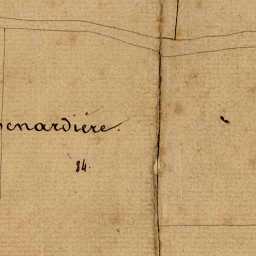 enardière.
84.